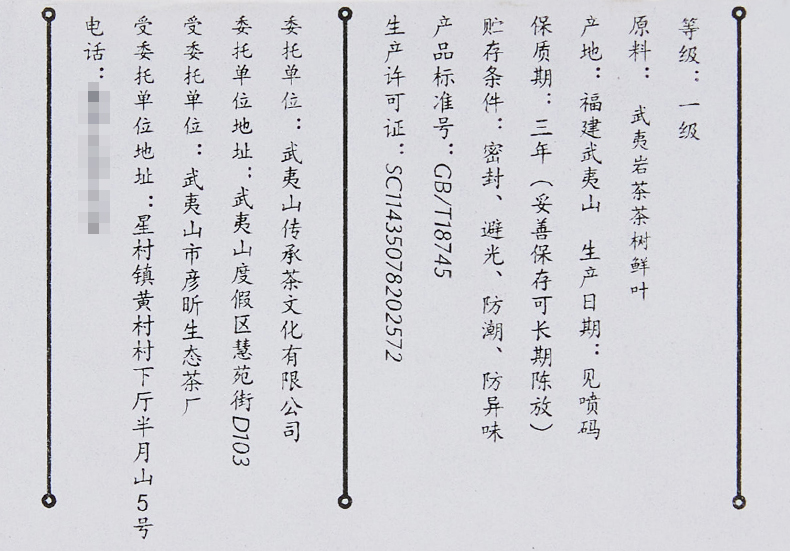 等级：一级
原料：武夷岩茶茶树鲜叶
产地：福建武夷山 生产日期：见喷码
保质期：三年（妥善保存可长期陈放）
贮存条件：密封、避光、防潮、防异味
产品标准号：GB/T18745
生产许可证：SC11435078202572
委托单位：武夷山传承茶文化有限公司
委托单位地址：武夷山度假区慧苑街D103
受委托单位：武夷山市彦昕生态茶厂
受委托单位地址：星村镇黄村村下厅半月山5号
电话：